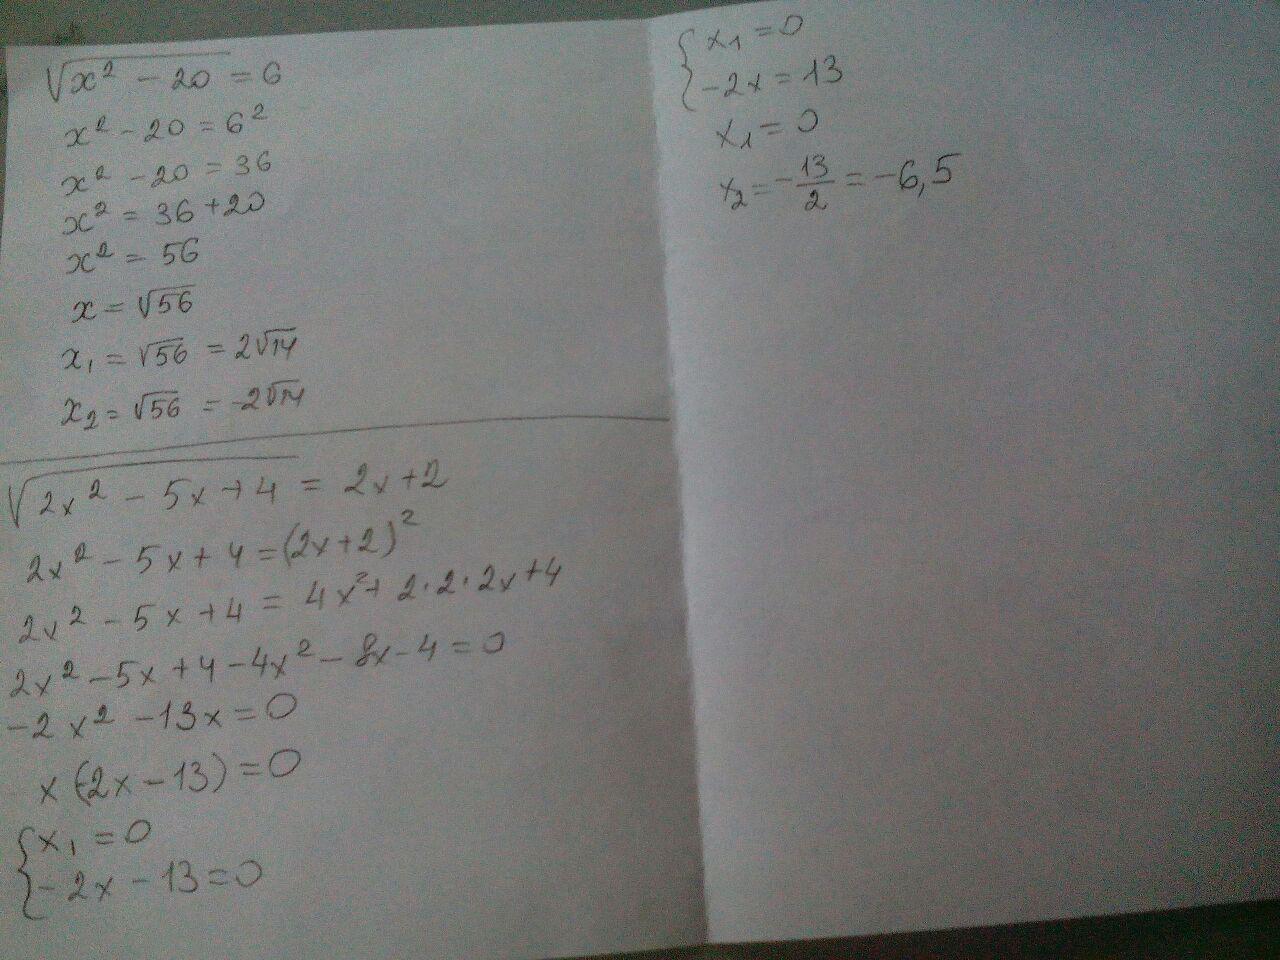 √(x² - 20) = 6
x² - 20 = 6²
x² - 20 = 36
x² = 36 + 20
x² = 56
x = √56
x₁ = √56 = 2√14
x₂ = √56 = -2√14
√(2x² - 5x + 4) = 2x + 2
2x² - 5x + 4 = (2x + 2)²
2x² - 5x + 4 = 4x² + 2·2·2x + 4
2x² - 5x + 4 - 4x² - 8x - 4 = 0
-2x² - 13x = 0
x(-2x - 13) = 0
{ x₁ = 0
-2x - 13 = 0
{ x₁ = 0
-2x = 13
x₁ = 0
x₂ = -13/2 = -6,5